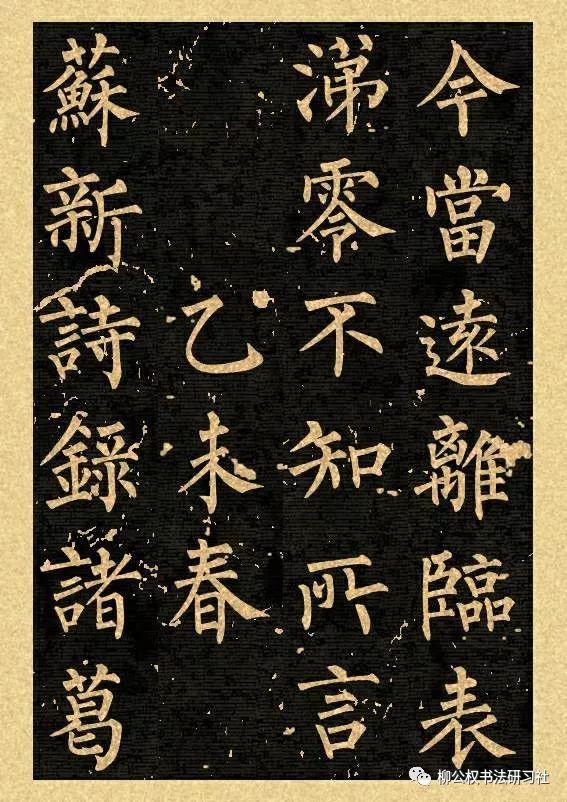 今當遠離臨表
涕零不知所言
乙未春
蘇新詩錄諸葛
柳公权书法研习社